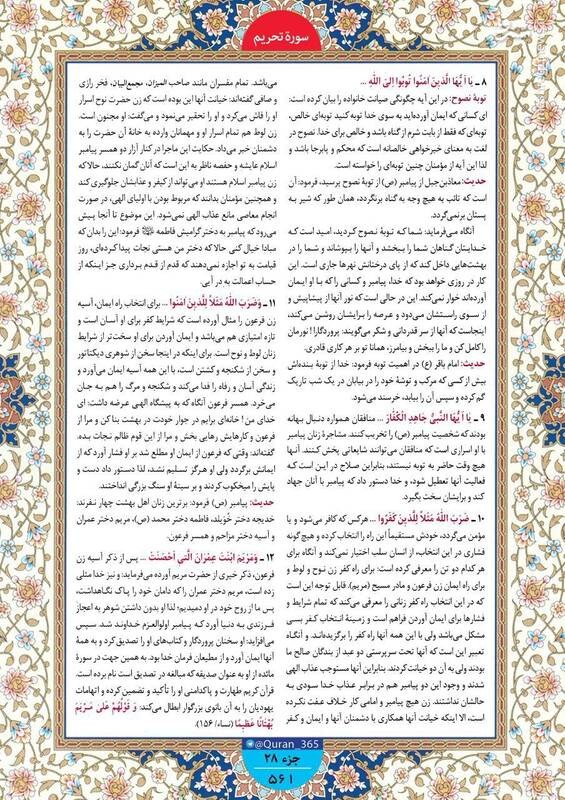 سورة تحریم
۸ ـ یا اَیُّهَا الَّذینَ آمَنُوا تُوبُوا اِلَی اللهِ ...
توبهٔ نصوح: در این آیه چگونگی صیانت خانواده را بیان کرده است:
ای کسانی که ایمان آورده‌اید به سوی خدا توبه کنید توبه‌ای خالص،
توبه‌ای که فقط از بابت شرم از گناه باشد و خالص برای خدا. نصوح در
لغت به معنای خیرخواهی خالصانه است که محکم و پابرجا باشد و
لذا این آیه از مؤمنان چنین توبه‌ای را خواسته است.
حدیث: معاذبن‌جبل از پیامبر (ص) از توبهٔ نصوح پرسید، فرمود: آن
است که تائب به هیچ وجه به گناه برنگردد، همان طور که شیر به
پستان برنمی‌گردد.
آنگاه می‌فرماید: شما که توبهٔ نصوح کردید، امید است که
خدایتان گناهان شما را ببخشد و آنها را بپوشاند و شما را در
بهشت‌هایی داخل کند که از پای درختانش نهرها جاری است. این
کار در روزی خواهد بود که خدا، پیامبر و کسانی را که با او ایمان
آورده‌اند خوار نمی‌کند. این در حالی است که نور آنها از پیشاپیش و
از سوی راستشان می‌دود و عرصه را برایشان روشن می‌کند،
اینجاست که آنها از سر قدردانی و شکر می‌گویند: پروردگارا! نورمان
را کامل کن و ما را ببخش و بیامرز، همانا تو بر هر کاری قادری.
حدیث: امام باقر (ع) در اهمیت توبه فرمود: خدا از توبهٔ بنده‌اش
بیش از کسی که مرکب و توشهٔ خود را در بیابان در یک شب تاریک
گم کرده و سپس آن را بیابد، خرسند می‌شود.
۹ ـ یا اَیُّهَا النَّبِیُّ جاهِدِ الْکُفّارَ ... منافقان همواره دنبال بهانه
بودند که شخصیت پیامبر (ص) را تخریب کنند. مشاجرهٔ زنان پیامبر
با او اسراری است که منافقان می‌توانند شایعاتی پخش کنند. آنها
هیچ وقت حاضر به توبه نیستند، بنابراین صلاح در این است که
فعالیت آنها تعطیل شود، و خدا دستور داد که پیامبر با آنان جهاد
کند و برایشان سخت بگیرد.
۱۰ ـ ضَرَبَ اللهُ مَثَلاً لِلَّذینَ کَفَرُوا ... هرکس که کافر می‌شود و یا
مؤمن می‌گردد، خودش مستقیماً این راه را انتخاب کرده و هیچ گونه
فشاری در این انتخاب از انسان سلب اختیار نمی‌کند و آنگاه برای
هر کدام دو تن را معرفی کرده است: برای راه کفر زن نوح و لوط و
برای راه ایمان زن فرعون و مادر مسیح (مریم). قابل توجه این است
که در این انتخاب راه کفر زنانی را معرفی می‌کند که تمام شرایط و
فشارها برای ایمان آوردن فراهم است و زمینهٔ انتخاب کفر بسی
مشکل می‌باشد ولی با این همه آنها راه کفر را برگزیده‌اند. و آنگاه
تعبیر این است که آنها تحت سرپرستی دو عبد از بندگان صالح ما
بودند ولی به آن دو خیانت کردند. بنابراین آنها مستوجب عذاب الهی
شدند و وجود این دو پیامبر هم در برابر عذاب خدا سودی به
حالشان نداشتند. زن هیچ پیامبر و امامی کار خلاف عفت نکرده
است، الا اینکه خیانت آنها همکاری با دشمنان آنها و ایمان و کفر
می‌باشد. تمام مفسران مانند صاحب المیزان، مجمع‌البیان، فخر رازی
و صافی گفته‌اند: خیانت آنها این بوده است که زن حضرت نوح اسرار
او را فاش می‌کرد و او را تحقیر می‌نمود و می‌گفت: او مجنون است.
زن لوط هم تمام اسرار او و مهمانان وارده به خانهٔ آن حضرت را به
دشمنان خبر می‌داد. حکایت این ماجرا در کنار آزار دو همسر پیامبر
اسلام عایشه و حفصه ناظر به این است که آنان گمان نکنند، حالا که
زن پیامبر اسلام هستند او می‌تواند از کیفر و عذابشان جلوگیری کند
و همچنین مؤمنان بدانند که مربوط بودن با اولیای الهی، در صورت
انجام معاصی مانع عذاب الهی نمی‌شود. این موضوع تا آنجا پیش
می‌رود که پیامبر به دختر گرامیش فاطمه فرمود: این را بدان که
مبادا خیال کنی حالا که دختر من هستی نجات پیدا کرده‌ای، روز
قیامت به تو اجازه نمی‌دهند که قدم از قدم برداری جز اینکه از
حساب اعمالت به در آیی.
۱۱ ـ وَضَرَبَ اللهُ مَثَلاً لِلَّذینَ آمَنُوا ... برای انتخاب راه ایمان، آسیه
زن فرعون را مثال آورده است که شرایط کفر برای او آسان است و
تازه امتیازی هم می‌باشد و ایمان آوردن برای او سخت‌تر از شرایط
زنان لوط و نوح است. برای اینکه در اینجا سخن از شوهری دیکتاتور
و سخن از شکنجه و کشتن است، با این همه آسیه ایمان می‌آورد و
زندگی آسان و رفاه را فدا می‌کند و شکنجه و مرگ را هم به جان
می‌خرد. همسر فرعون آنگاه که به پیشگاه الهی عرضه داشت: ای
خدای من! خانه‌ای برایم در جوار خودت در بهشت بنا کن و مرا از
فرعون و کارهایش رهایی بخش و مرا از این قوم ظالم نجات بده.
گفته‌اند: وقتی که فرعون از ایمان او مطلع شد بر او فشار آورد که از
ایمانش برگردد ولی او هرگز تسلیم نشد، لذا دستور داد دست و
پایش را میخکوب کردند و بر سینهٔ او سنگ بزرگی انداختند.
حدیث: پیامبر (ص) فرمود: برترین زنان اهل بهشت چهار نفرند:
خدیجه دختر خُوَیلد، فاطمه دختر محمد (ص)، مریم دختر عمران
و آسیه دختر مزاحم و همسر فرعون.
۱۲ ـ وَمَرْیَمَ ابْنَتَ عِمْرانَ الَّتی اَحْصَنَتْ ... پس از ذکر آسیه زن
فرعون، ذکر خیری از حضرت مریم آورده می‌فرماید: و نیز خدا مثلی
زده است، مریم دختر عمران را که دامان خود را پاک نگاهداشت،
پس ما از روح خود در او دمیدیم؛ لذا او بدون داشتن شوهر به اعجاز
فرزندی به دنیا آورد که پیامبر اولوالعزم خداوند شد. سپس
می‌افزاید: او سخنان پروردگار و کتاب‌های او را تصدیق کرد و به همهٔ
آنها ایمان آورد و از مطیعان فرمان خدا بود. به همین جهت در سورهٔ
مائده از او به عنوان صدیقه که مبالغه در تصدیق است نام برده است.
قرآن کریم طهارت و پاکدامنی او را تأکید و تضمین کرده و اتهامات
یهودیان را به آن بانوی بزرگوار ابطال می‌کند: وَ قَوْلِهِمْ عَلَى مَرْیَمَ
بُهْتَانًا عَظِیمًا (نساء/ ۱۵۶).
@Quran_365
جزء ۲۸
۵۶۱